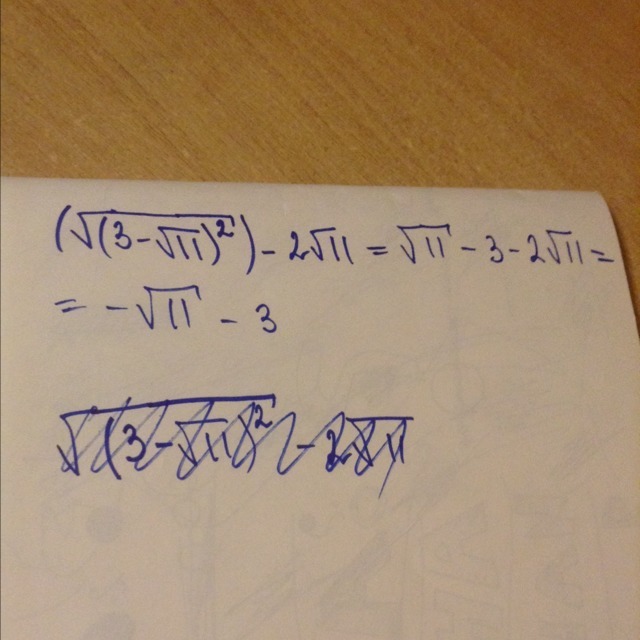 (√(3-√11)²) - 2√11 = √11 - 3 - 2√11 =
= -√11 - 3
√(3-√11)² - 2√11